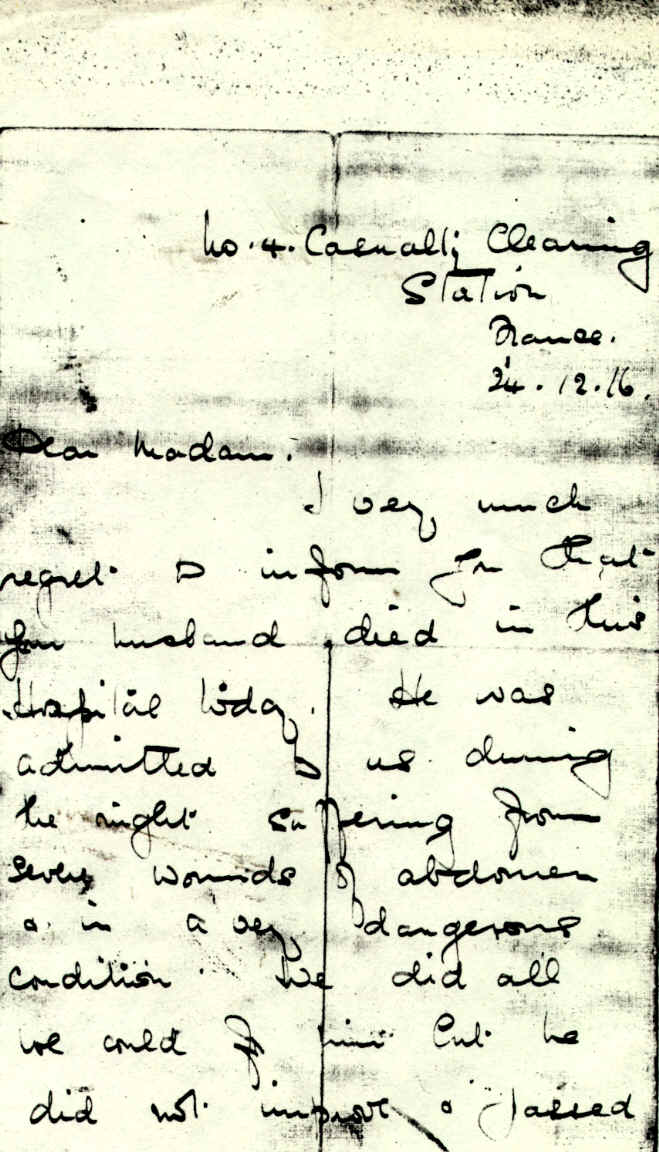 No. 4. Casualty Clearing
Station
France.
24.12.16.
Dear Madam.
I very much
regret to inform you that
your husband died in this
Hospital today. He was
admitted to us during
the night suffering from
severe wounds of abdomen
& in a very dangerous
condition. We did all
we could for him but he
did not improve & passed